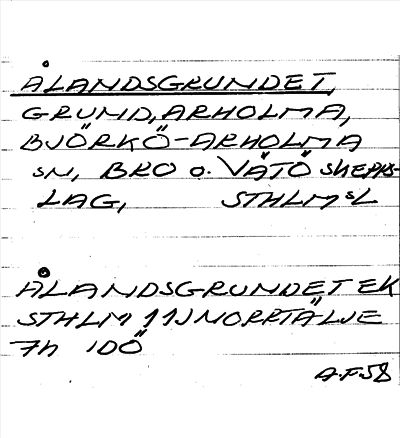 ÅLANDSGRUNDET,
GRUND, ARHOLMA,
BJÖRKÖ-ARHOLMA
SN, BRO o. VÄTÖ SKEPPS-
LAG, STHLM SL
ÅLANDSGRUNDET EK
STHLM 11J NORRTÄLJE
7h IDÖ
A.F.58